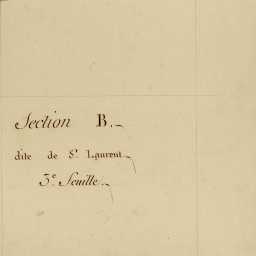 Section B.
dite de St Laurent
3e. Feuille.